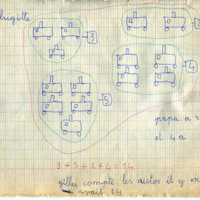 brigitte
3
2
5
4
papa a
et 4 a
3 + 5 + 2 + 4 = 14
gilles compte les autos il y en
avait 14